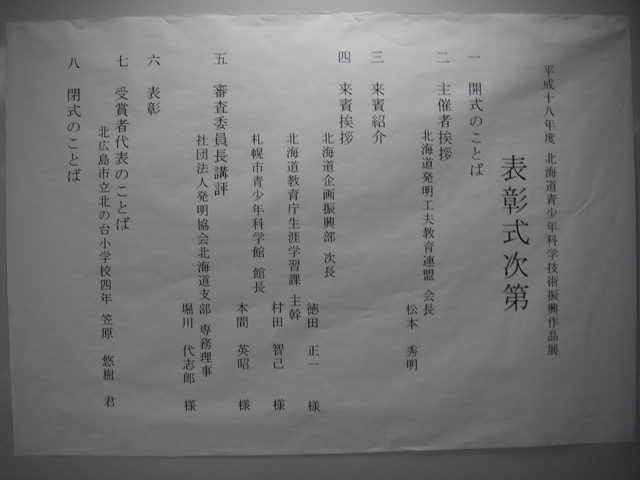 平成十八年度 北海道青少年科学技術振興作品展
表彰式次第
一 開式のことば
二 主催者挨拶
北海道発明工夫教育連盟 会長
松本 秀明
三 来賓紹介
四 来賓挨拶
北海道企画振興部 次長
徳田 正一 様
北海道教育庁生涯学習課 主幹
村田 智己 様
札幌市青少年科学館 館長
本間 英昭 様
五 審査委員長講評
社団法人発明協会北海道支部 専務理事
堀川 代志郎 様
六 表彰
七 受賞者代表のことば
北広島市立北の台小学校四年 笠原 悠樹 君
八 閉式のことば